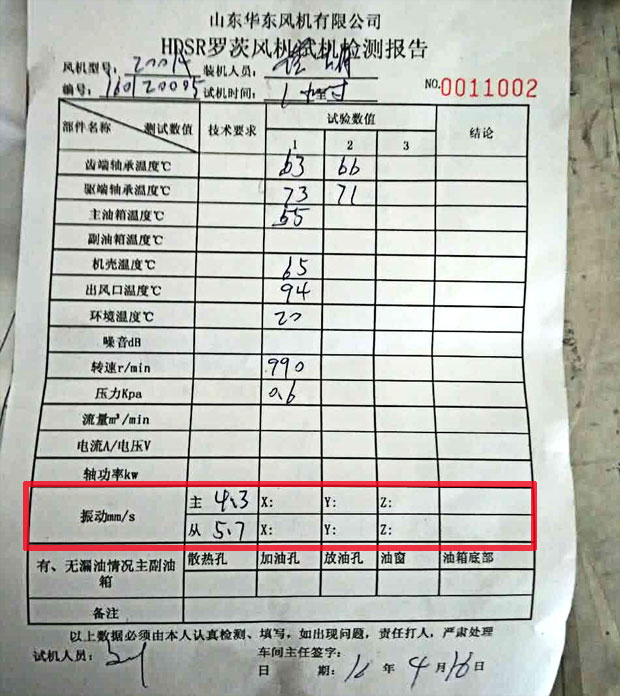 山东华东风机有限公司
HDSR罗茨风机试机检测报告
风机型号: 200A 装机人员:
编号: 160120095 试机时间: 1小时
NO.0011002
部件名称 测试数值 技术要求 试验数值 结论
1 2 3
齿端轴承温度℃ 63 66
驱端轴承温度℃ 73 71
主油箱温度℃ 55
副油箱温度℃
机壳温度℃ 65
出风口温度℃ 94
环境温度℃ 20
噪音dB
转速r/min 990
压力Kpa 0.6
流量m³/min
电流A/电压V
轴功率kw
振动mm/s 主 4.3 X: Y: Z:
从 5.7 X: Y: Z:
有、无漏油情况主副油箱 散热孔 加油孔 放油孔 油窗 油箱底部
备注
以上数据必须由本人认真检测、填写，如出现问题，责任打人，严肃处理
试机人员: 车间主任签字:
日 期: 16 年 4 月 16 日